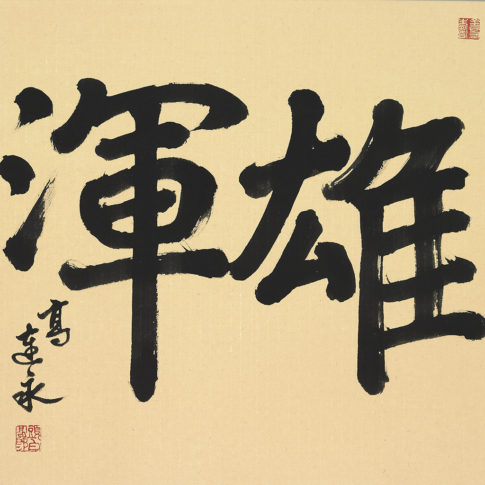 雄渾
高連永